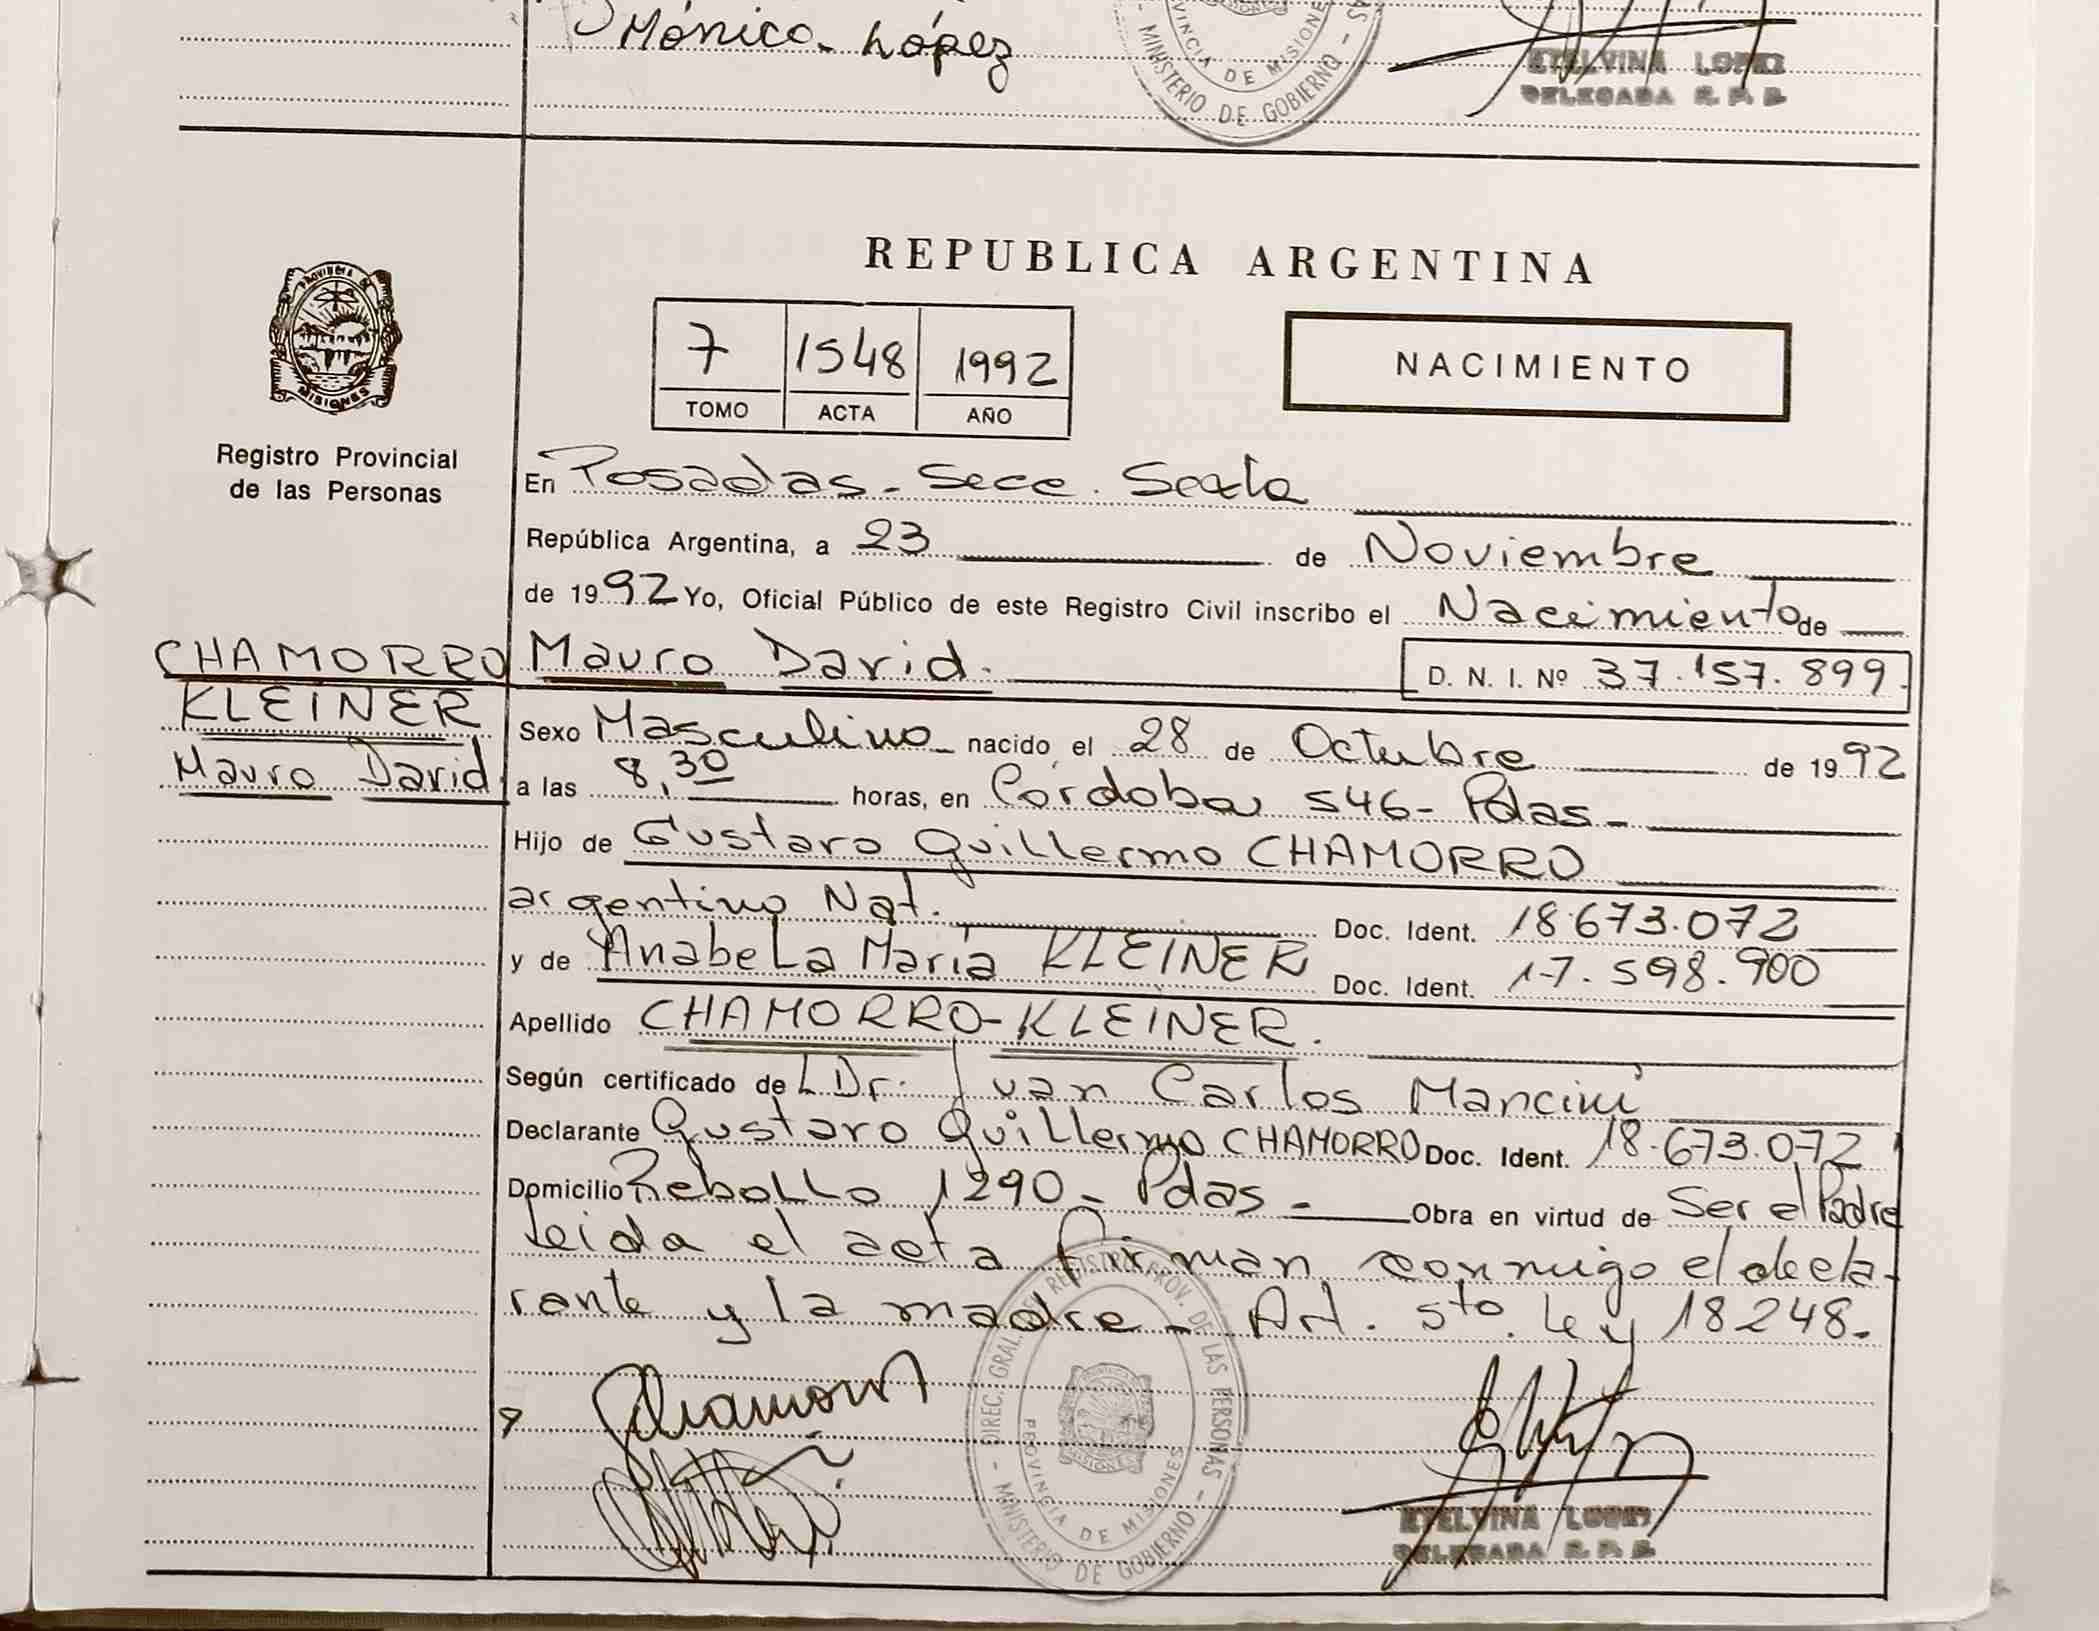 Mónica López
PROVINCIA DE MISIONES
MINISTERIO DE GOBIERNO
ETELVINA LOPEZ
DELEGADA R. P. P.
REPUBLICA ARGENTINA
PROVINCIA DE MISIONES
7 1548 1992
TOMO ACTA AÑO
NACIMIENTO
Registro Provincial
de las Personas
En Posadas - Secc. Sexta
República Argentina, a 23 de Noviembre
de 1992 Yo, Oficial Público de este Registro Civil inscribo el Nacimiento de
CHAMORRO
KLEINER
Mauro David
Mauro David.
D. N. I. Nº 37.157.899.
Sexo Masculino nacido el 28 de Octubre de 1992
a las 8,30 horas, en Córdoba 546 - Pdas -
Hijo de Gustavo Guillermo CHAMORRO
argentino Nat. Doc. Ident. 18.673.072
y de Anabela María KLEINER Doc. Ident. 17.598.900
Apellido CHAMORRO-KLEINER.
Según certificado del Dr. Juan Carlos Mancini
Declarante Gustavo Guillermo CHAMORRO Doc. Ident. 18.673.072
Domicilio Rebollo 1290 - Pdas - Obra en virtud de Ser el Padre
Leida el acta firman conmigo el decla-
rante y la madre - Art. 5to. Ley 18248.
DIREC. GRAL. DEL REGISTRO PROV. DE LAS PERSONAS
PROVINCIA DE MISIONES
MINISTERIO DE GOBIERNO
ETELVINA LOPEZ
DELEGADA R. P. P.